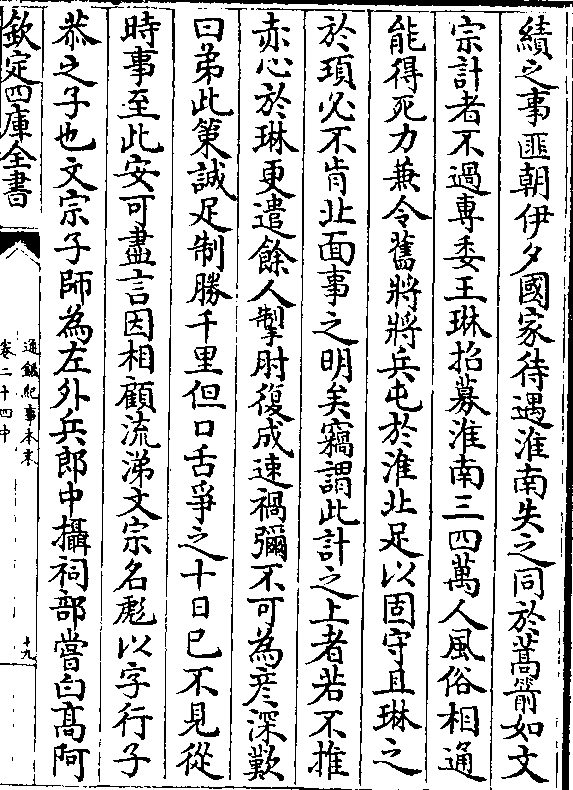 績之事匪朝伊夕國家待遇淮南失之同於蒿箭如文
宗計者不過專委王琳招募淮南三四萬人風俗相通
能得死力兼令舊將將兵屯於淮北足以固守且琳之
於頊必不肯北面事之明矣竊謂此計之上者若不推
赤心於琳更遣餘人掣肘復成速禍彌不可為彦深歎
曰弟此策誠足制勝千里但口舌爭之十日已不見從
時事至此安可盡言因相顧流涕文宗名彪以字行子
恭之子也文宗子師為左外兵郎中攝祠部嘗白高阿
欽定四庫全書
通鑑紀事本末
卷二十四中
十九